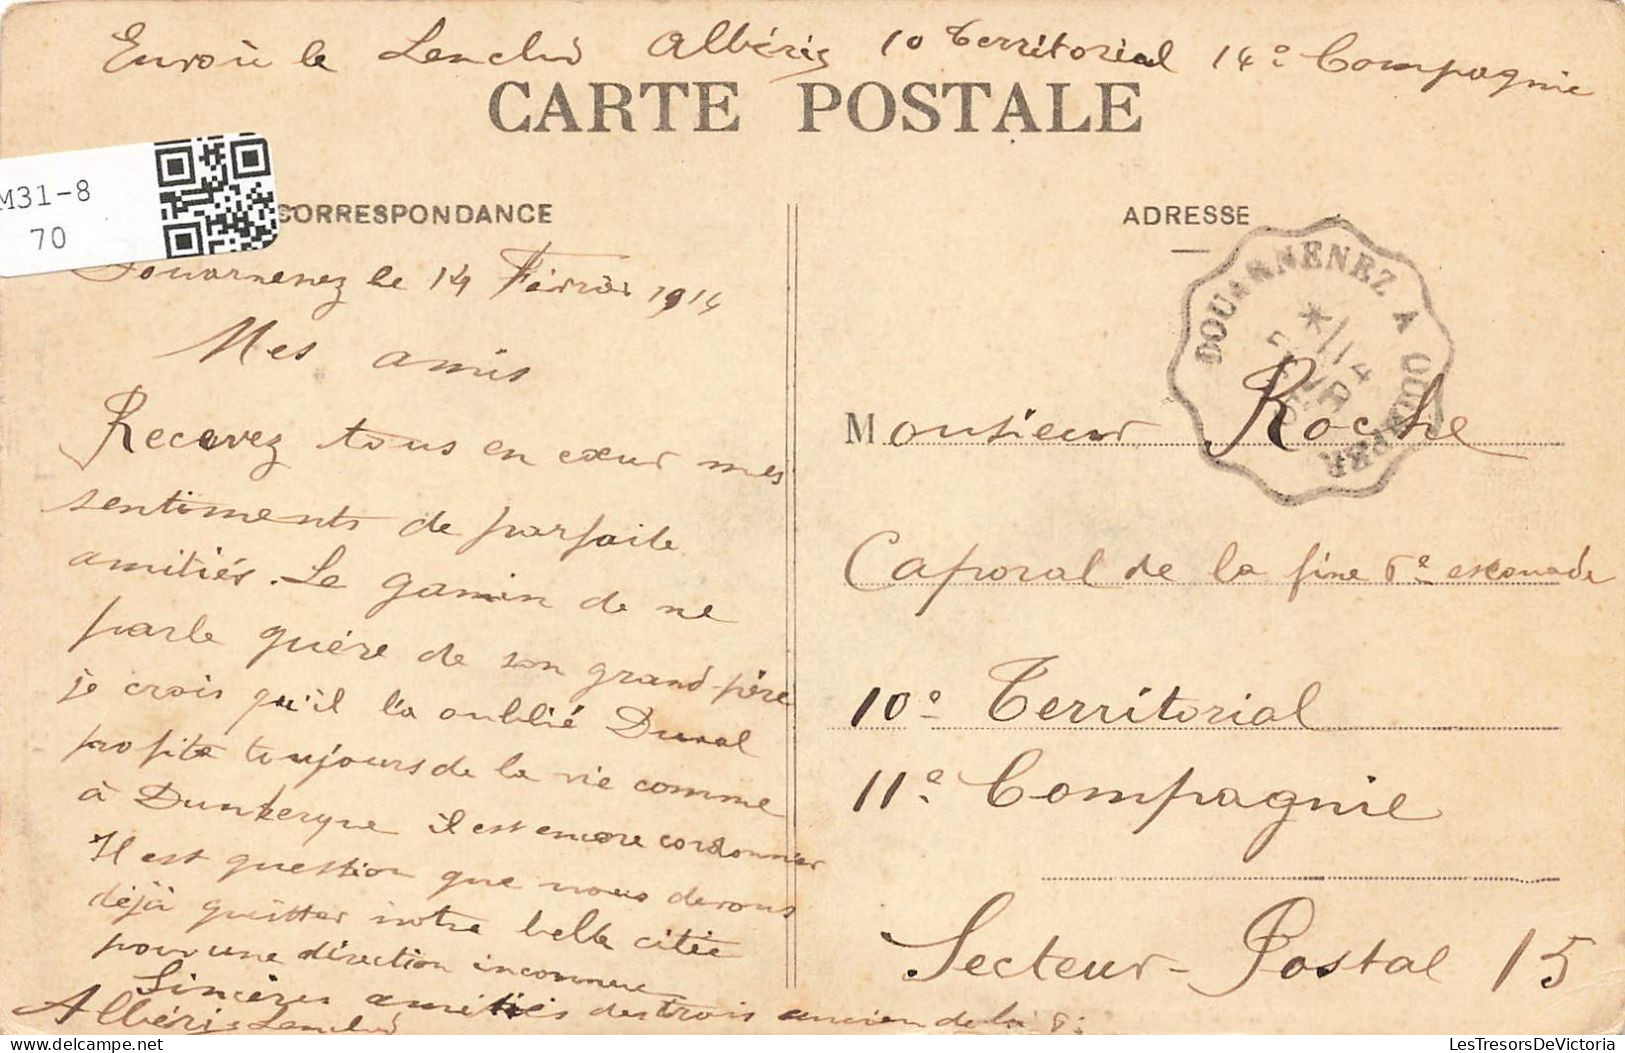 Envoie le Lenclud Albéric 10 Territorial 14e Compagnie
CARTE POSTALE
M31-8
70
CORRESPONDANCE
ADRESSE
DOUARNENEZ A QUIMPER
Douarnenez le 14 Février 1914
Mes amis
Recevez tous en cœur mes
sentiments de parfaite
amitiés. Le gamin de ne
parle guére de son grand-père
je crois qu'il l'a oublié Duval
profite toujours de la vie comme
à Dunkerque il est encore cordonnier
Il est question que nous devons
déjà quitter notre belle citée
pour une direction inconnue
Sincères amitiés des trois ancien de la 6e
Albéric Lenclud
Monsieur Roche
Caporal de la fine 6e escouade
10e Territorial
11e Compagnie
Secteur-Postal 15
LesTresorsDeVictoria